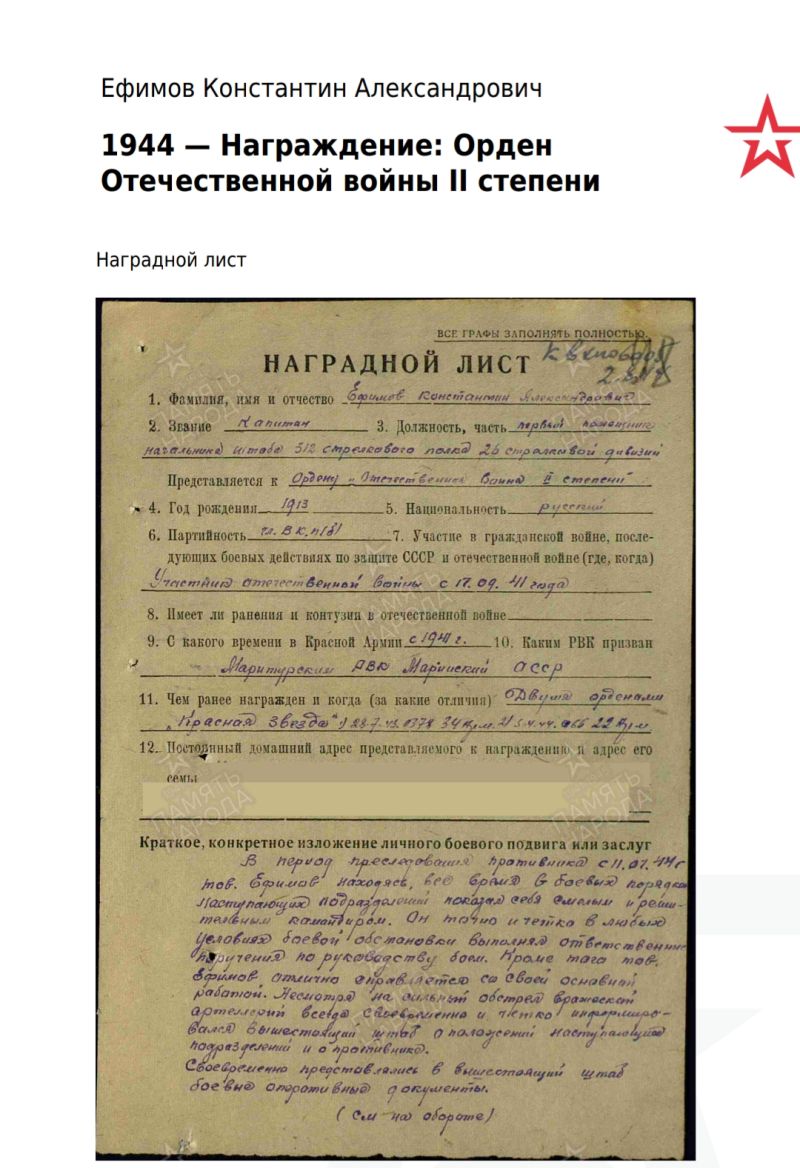 Ефимов Константин Александрович
1944 — Награждение: Орден
Отечественной войны II степени
Наградной лист
ВСЕ ГРАФЫ ЗАПОЛНЯТЬ ПОЛНОСТЬЮ.
НАГРАДНОЙ ЛИСТ
1. Фамилия, имя и отчество Ефимов Константин Александрович
2. Звание Капитан 3. Должность, часть первый помощник
начальника штаба 312 стрелкового полка 26 стрелковой дивизии
Представляется к Ордену „Отечественная Война II степени"
4. Год рождения 1913 5. Национальность русский
6. Партийность 7. Участие в гражданской войне, после-
дующих боевых действиях по защите СССР и отечественной войне (где, когда)
Участник отечественной войны с 17.09.41 года
8. Имеет ли ранения и контузии в отечественной войне
9. С какого времени в Красной Армии с 1941 г. 10. Каким РВК призван
Маритурским РВК Марийский АССР
11. Чем ранее награжден и когда (за какие отличия) Двумя орденами
„Красная Звезда"
12. Постоянный домашний адрес представляемого к награждению и адрес его
семьи
ПАМЯТЬ НАРОДА
Краткое, конкретное изложение личного боевого подвига или заслуг
В период преследования противника с 11.07.44 г
тов. Ефимов находясь, всё время в боевых порядках
наступающих подразделений показал себя смелым и реши-
тельным командиром. Он точно и четко в любых
условиях боевой обстановки выполнял ответственные
поручения по руководству боем. Кроме того тов.
Ефимов отлично справляется со своей основной
работой. Несмотря на сильный обстрел вражеской
артелерий всегда своевременно и чётко информиро-
вался вышестоящий штаб о положении наступающих
подразделений и о противнике.
Своевременно представлялись в вышестоящий штаб
боевые оперативные документы.
(См на обороте)